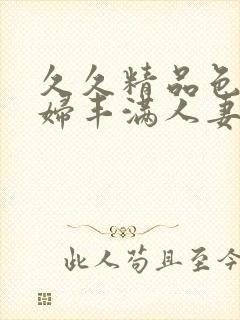 久久精品色
婦丰满人妻
此人苟且至今